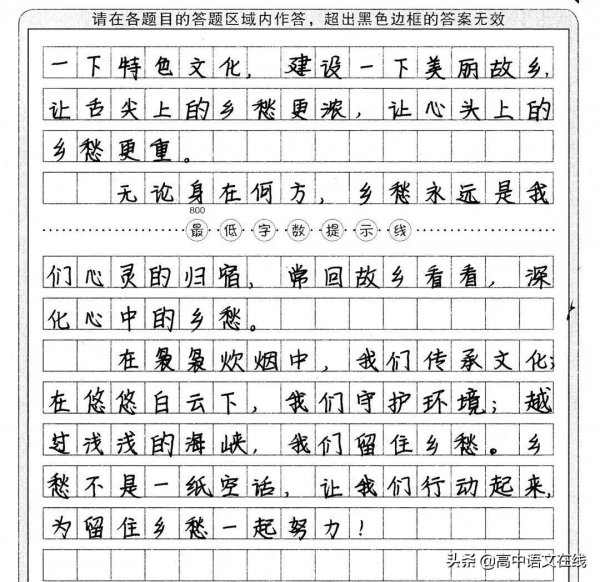 请在各题目的答题区域内作答，超出黑色边框的答案无效
一下特色文化，建设一下美丽故乡，
让舌尖上的乡愁更浓，让心头上的
乡愁更重。
无论身在何方，乡愁永远是我
800
最低字数提示线
们心灵的归宿，常回故乡看看，深
化心中的乡愁。
在袅袅炊烟中，我们传承文化；
在悠悠白云下，我们守护环境；越
过浅浅的海峡，我们留住乡愁。乡
愁不是一纸空话，让我们行动起来，
为留住乡愁一起努力！
头条@高中语文在线